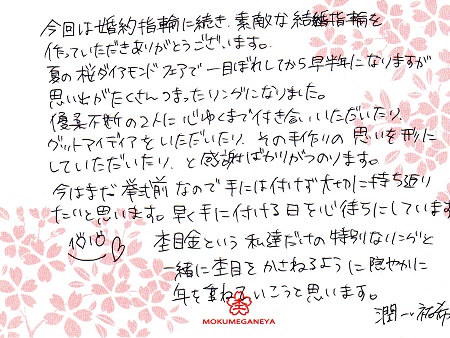 今回は婚約指輪に続き、素敵な結婚指輪を
作っていただきありがとうございます。
夏の桜ダイアモンドフェアで一目ぼれしてから早半年になりますが
思い出がたくさんつまったリングになりました。
優柔不断の2人に心ゆくまで付き合いいただいたり、
グットアイディアをいただいたり、その手作りの思いを形に
していただいたり、と感謝ばかりがつのります。
今はまだ挙式前なので手には付けず大切に持ち返り
たいと思います。早く手に付ける日を心待ちにしています
杢目金という私達だけの特別なリングと
一緒に杢目をかさねるように穏やかに
年を重ねていこうと思います。
潤一 祐希
MOKUMEGANEYA